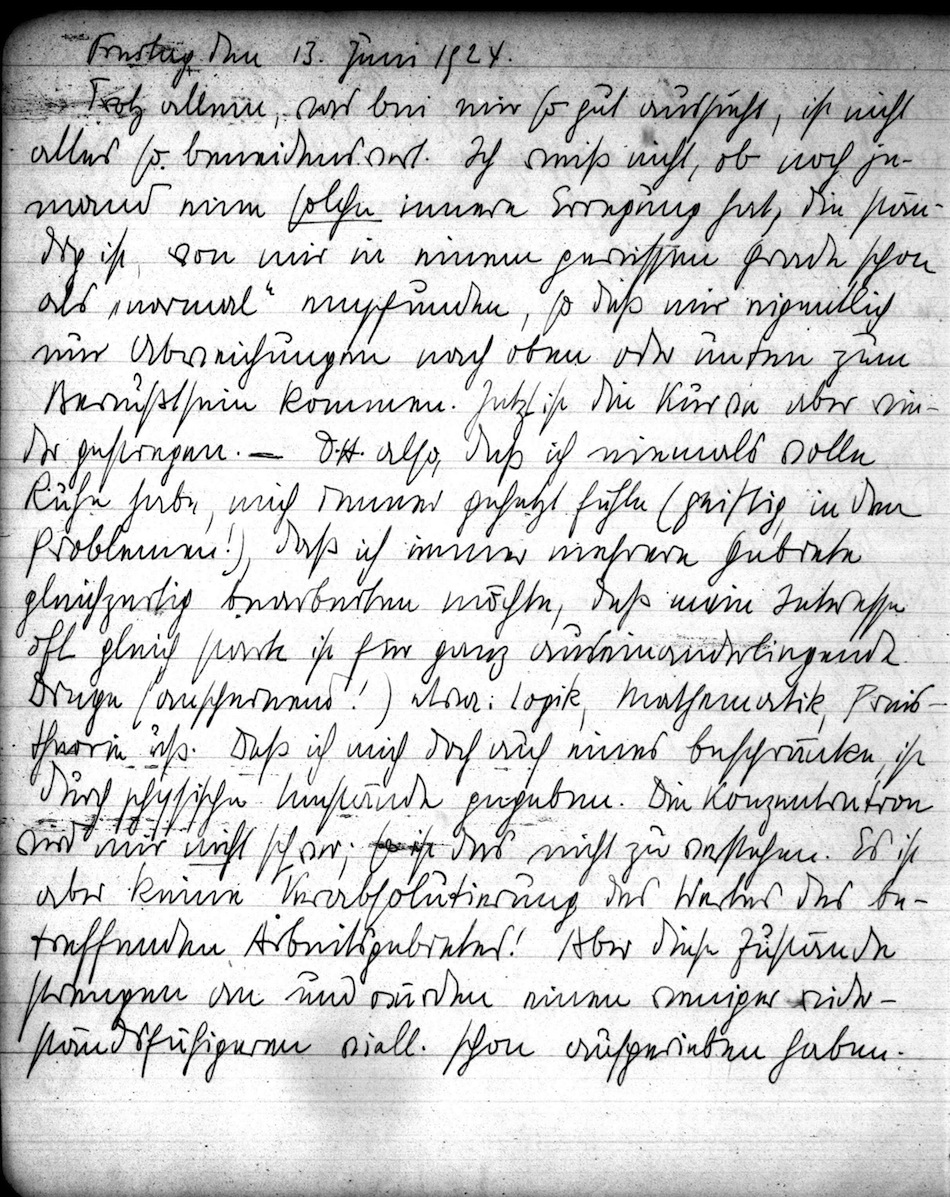 Freitag den 13. Juni 1924.
Trotz allem, was bei mir so gut aussieht, ist nicht
alles so beneidenswert. Ich weiß nicht, ob noch je-
mand eine solche innere Erregung hat, die stän-
dig ist, von mir in einem gewissen Grade schon
als „normal“ empfunden, so daß mir eigentlich
nur Abweichungen nach oben oder unten zum
Bewußtsein kommen. Jetzt ist die Kurve aber wie-
der gestiegen. — D.H. also, daß ich niemals volle
Ruhe habe, mich immer gehetzt fühle (geistig, in den
Problemen!), daß ich immer mehrere Gebiete
gleichzeitig bearbeiten möchte, daß mein Interesse
oft gleich stark ist für ganz auseinanderliegende
Dinge (anscheinend!) etwa: Logik, Mathematik, Preis-
theorie usf. Daß ich mich doch auf eines beschränke, ist
durch physische Umstände gegeben. Die Konzentration
wird mir nicht schwer; so ist das nicht zu verstehen. Es ist
aber keine Verabsolutierung des Wertes des be-
treffenden Arbeitsgebietes! Aber diese Zustände
strengen an und würden einen weniger wider-
standsfähigeren viell. schon aufgerieben haben.